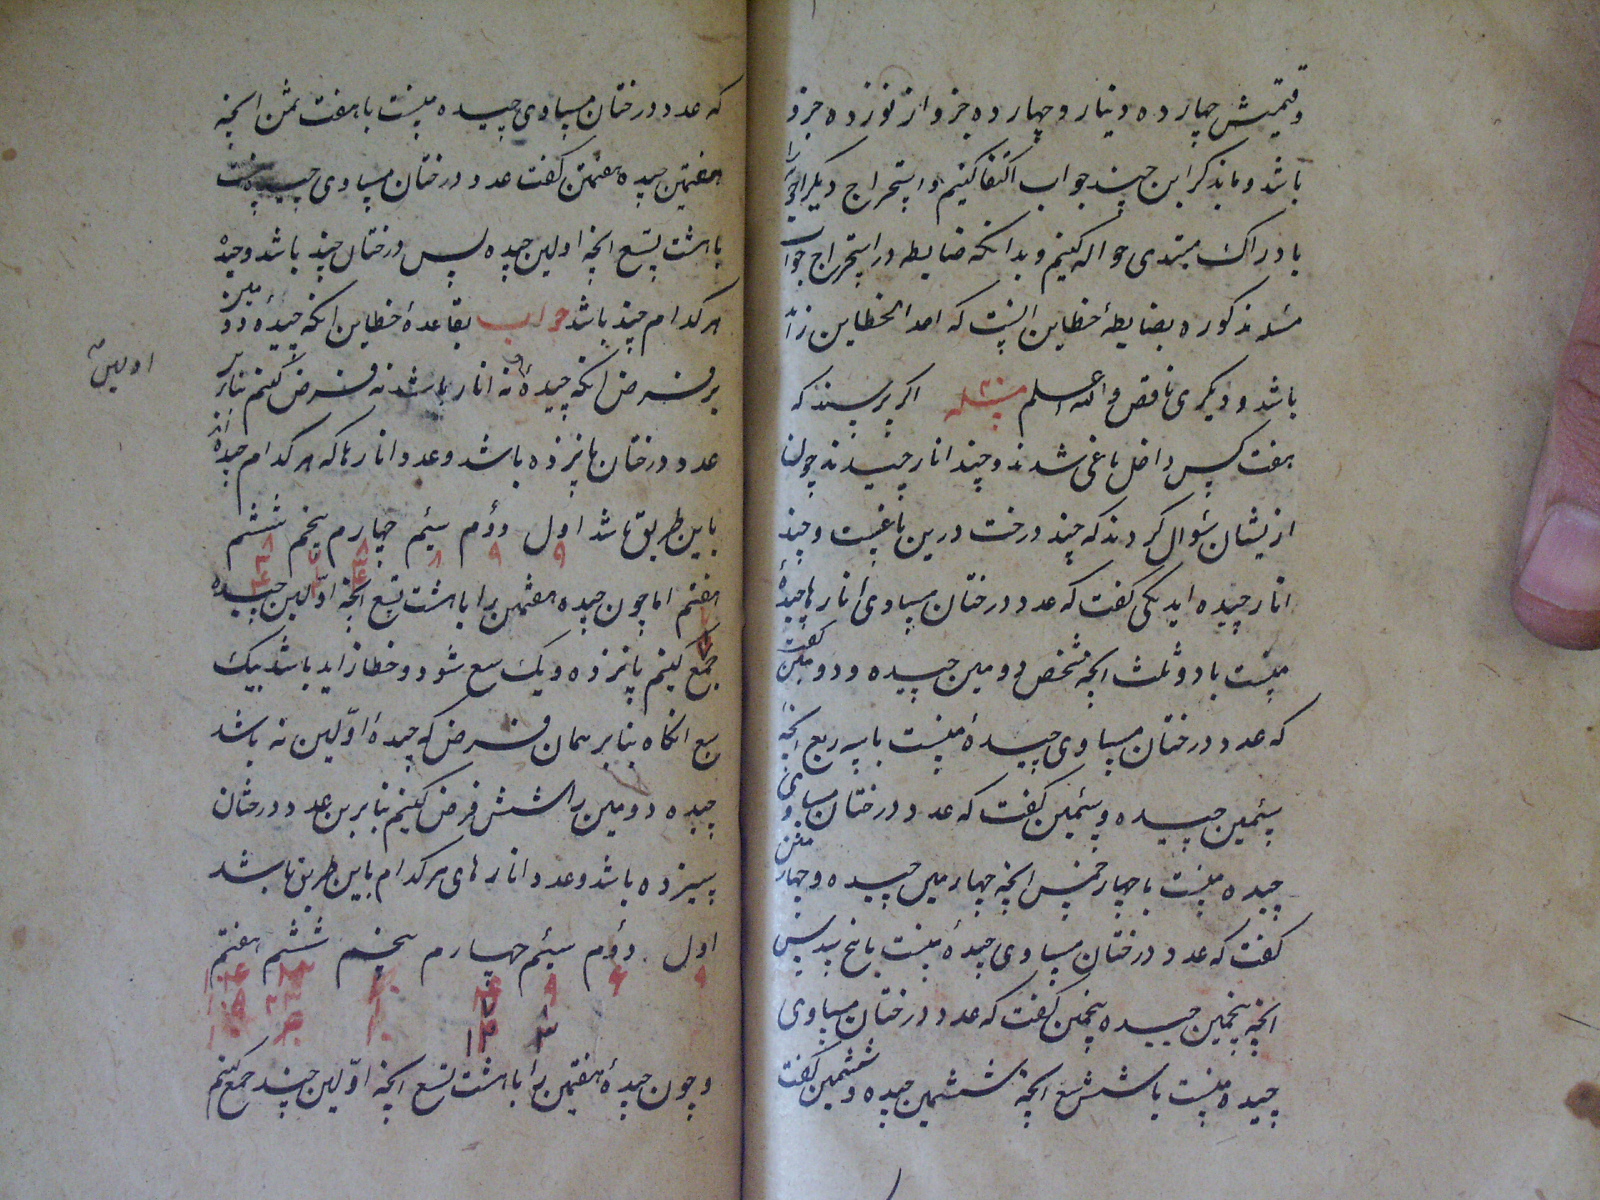 و قیمتش چهارده دینار و چهارده جزو از نوزده جزو
باشد و ما بذکر این چند جواب اکتفا کنیم و استخراج دیگر اجوبه را
بادراک مبتدی حواله کنیم و بدانکه ضابطه در استخراج جواب
مسئله مذکوره بضابطهٔ خطاین انست که احد الخطاین زائد
باشد و دیگری ناقص والله اعلم مسئله ۳۰ اگر پرسند که
هفت کس داخل باغی شدند و چند انار چیدند چون
ازیشان سؤال کردند که چند درخت درین باغست و چند
انار چیده اید یکی گفت که عدد درختان مساوی انارهای چیدهٔ
منست با دو ثلث انچه شخص دومین چیده و دومین گفت
که عدد درختان مساوی چیدهٔ منست با سه ربع انچه
سیمین چیده و سیمین گفت که عدد درختان مساوی
چیده منست با چهار خمس انچه چهارمین چیده و چهارمین
گفت که عدد درختان مساوی چیدهٔ منست با پنج سدس
انچه پنجمین چیده پنجمین گفت که عدد درختان مساوی
چیده منست با شش سبع انچه ششمین چیده و ششمین گفت
که عدد درختان مساوی چیده منست با هفت ثمن انچه
هفتمین چیده هفتمین گفت عدد درختان مساوی چیده منست
با هشت تسع انچه اولین چیده پس درختان چند باشد و چیده
هر کدام چند باشد جواب بقاعدهٔ خطاین انکه چیدهٔ دومین
بر فرض انکه چیدهٔ نه انار باشد نه فرض کنیم بنابرین
اولین
عدد درختان پانزده باشد و عدد انارها که هر کدام چیده اند
باین طریق باشد اول دوم سیم چهارم پنجم ششم
۹ ۹ ۸
هفتم اما چون چیده هفتمین را با هشت تسع انچه اولین چیده
جمع کنیم پانزده و یک سبع شود و خطا زاید باشد بیک
سبع انگاه بنابر همان فرض که چیدهٔ اولین نه باشد
چیده دومین را شش فرض کنیم بنابرین عدد درختان
سیزده باشد و عدد انارهای هر کدام باین طریق باشد
اول دوم سیم چهارم پنجم ششم هفتم
۹ ۶ ۹
و چون چیدهٔ هفتمین را با هشت تسع انچه اولین چیند جمع کنیم